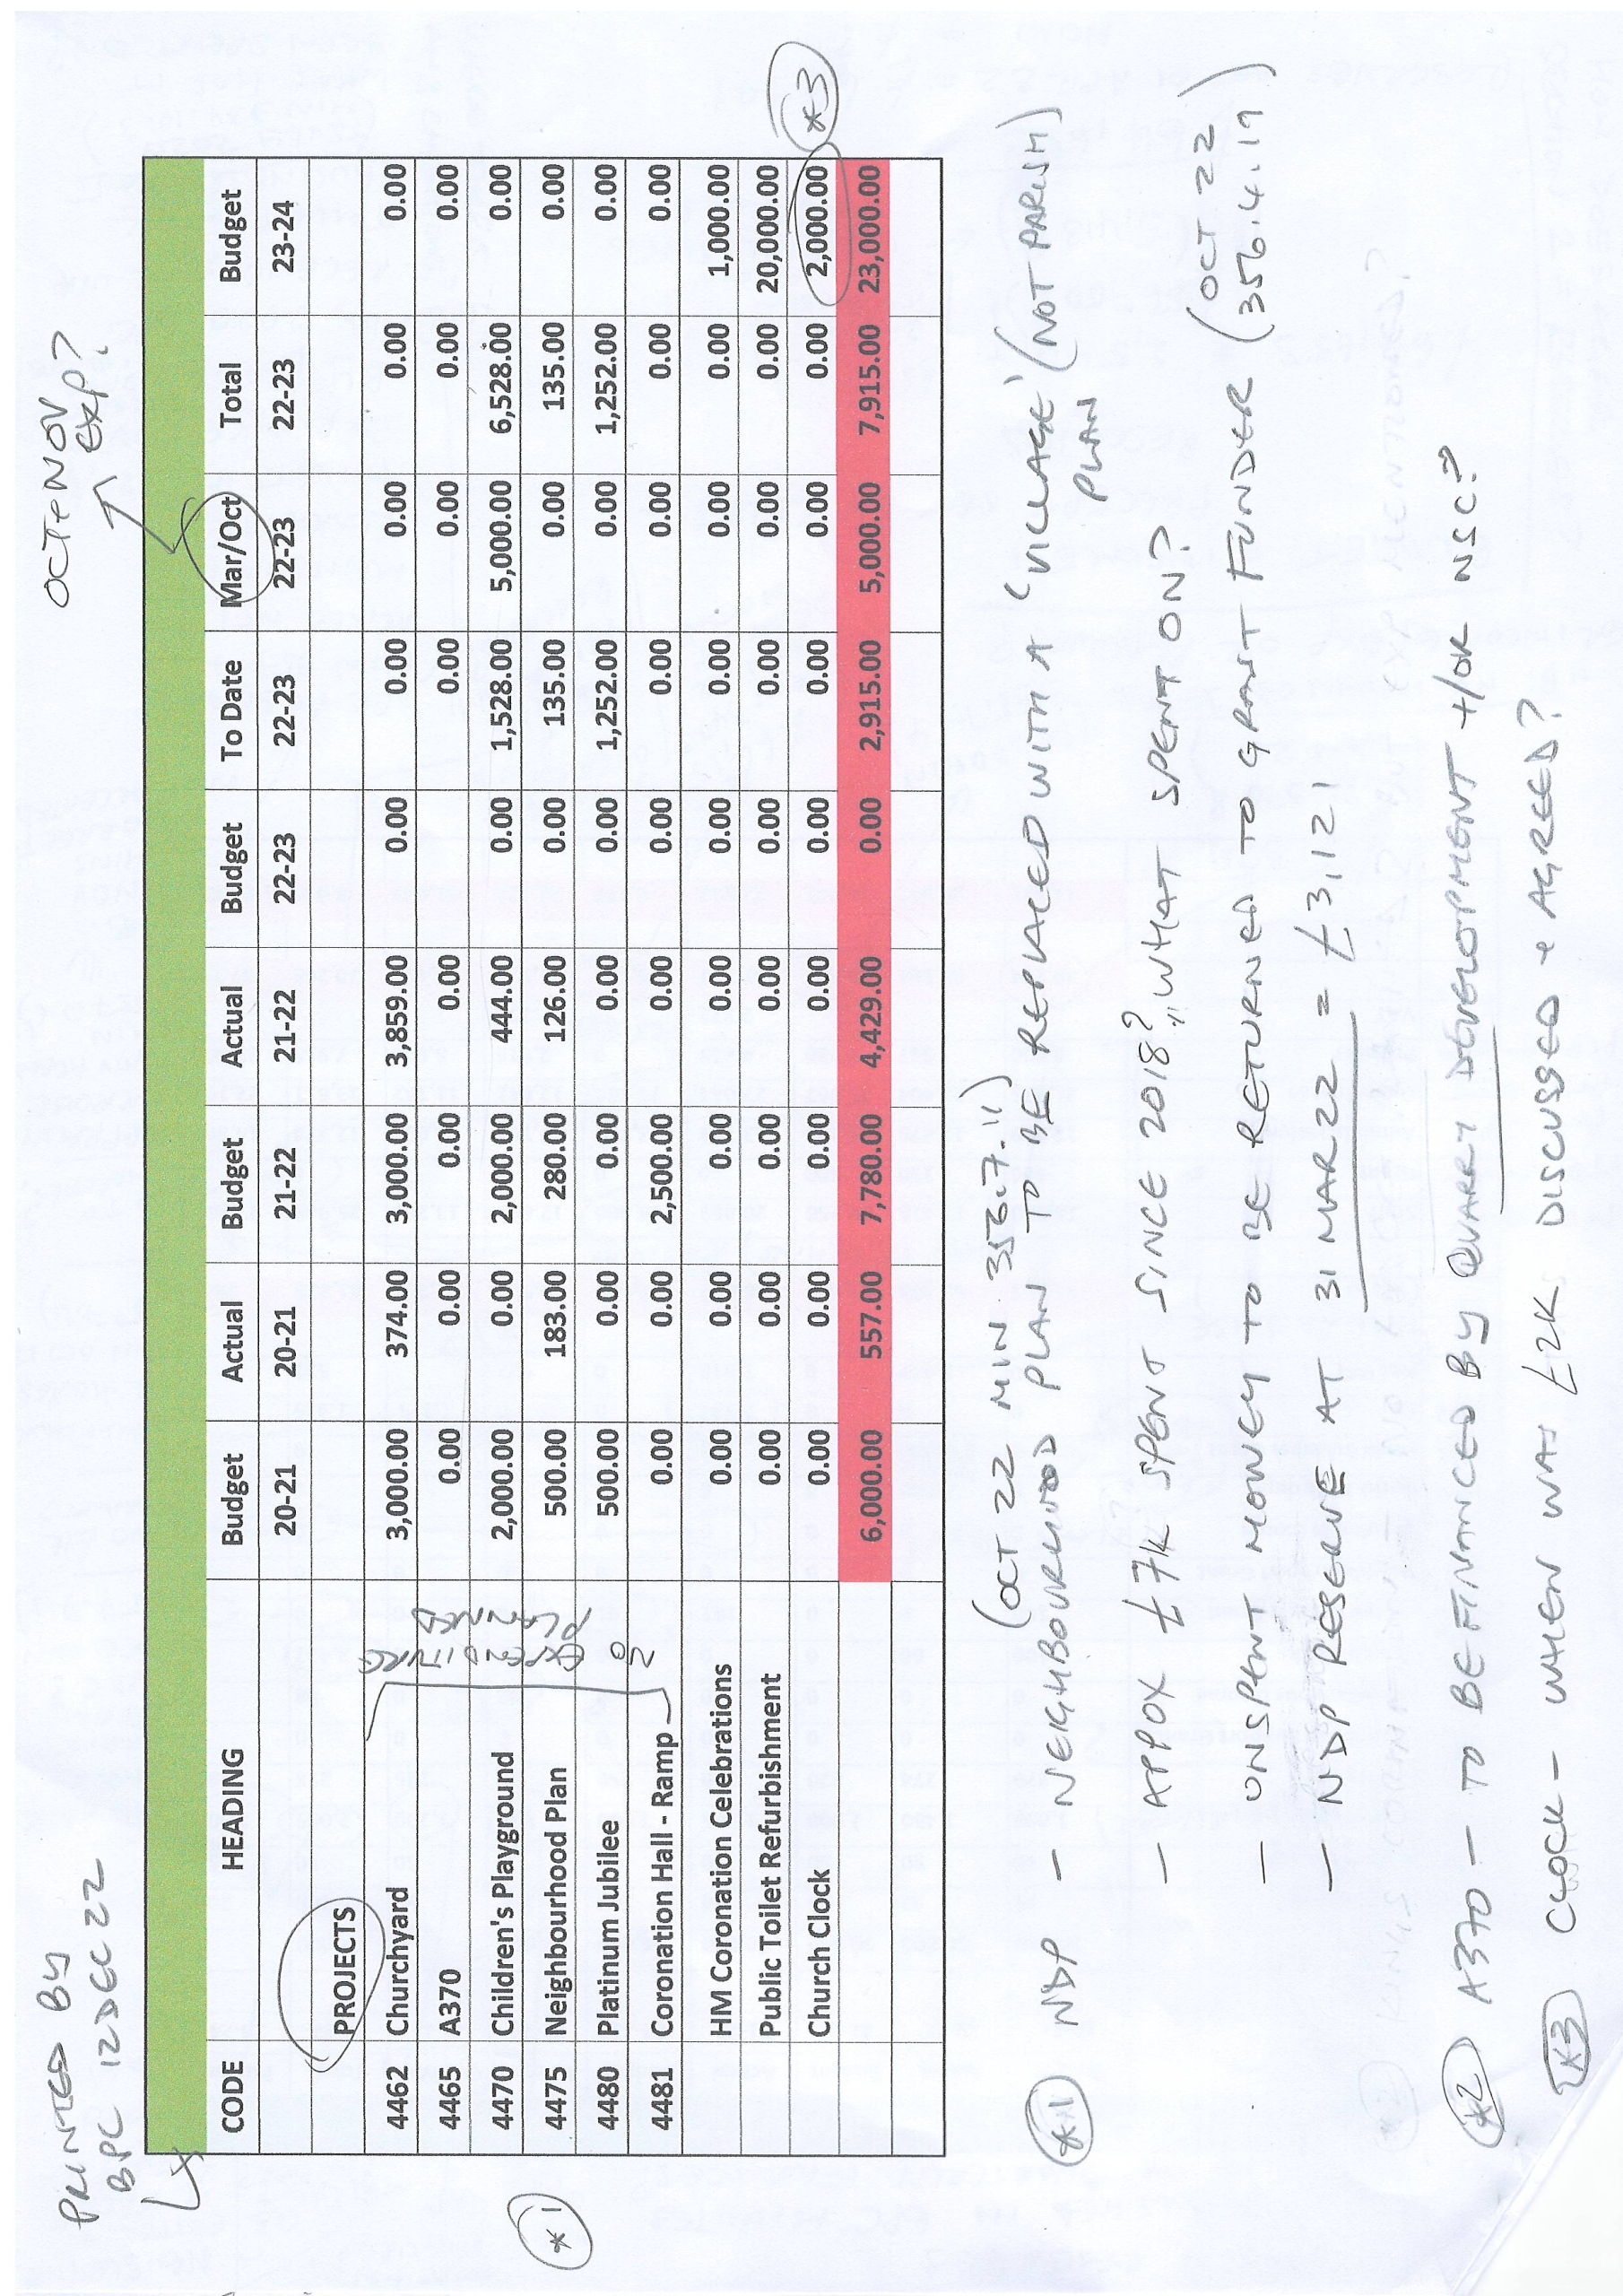 PRINTED BY
BPC 12 DEC 22
OCT & NOV
EXP?
CODE HEADING Budget Actual Budget Actual Budget To Date Mar/Oct Total Budget
20-21 20-21 21-22 21-22 22-23 22-23 22-23 22-23 23-24
PROJECTS
4462 Churchyard 3,000.00 374.00 3,000.00 3,859.00 0.00 0.00 0.00 0.00 0.00
4465 A370 0.00 0.00 0.00 0.00 0.00 0.00 0.00 0.00 0.00
4470 Children's Playground 2,000.00 0.00 2,000.00 444.00 0.00 1,528.00 5,000.00 6,528.00 0.00
*1 4475 Neighbourhood Plan 500.00 183.00 280.00 126.00 0.00 135.00 0.00 135.00 0.00
4480 Platinum Jubilee 500.00 0.00 0.00 0.00 0.00 1,252.00 0.00 1,252.00 0.00
4481 Coronation Hall - Ramp 0.00 0.00 2,500.00 0.00 0.00 0.00 0.00 0.00 0.00
HM Coronation Celebrations 0.00 0.00 0.00 0.00 0.00 0.00 0.00 0.00 1,000.00
Public Toilet Refurbishment 0.00 0.00 0.00 0.00 0.00 0.00 0.00 0.00 20,000.00
Church Clock 0.00 0.00 0.00 0.00 0.00 0.00 0.00 0.00 2,000.00 *3
6,000.00 557.00 7,780.00 4,429.00 0.00 2,915.00 5,000.00 7,915.00 23,000.00
(OCT 22 MIN 356.7.11)
*1 NDP - NEIGHBOURHOOD PLAN TO BE REPLACED WITH A 'VILLAGE' (NOT PARISH)
PLAN
- APPOX £71K SPENT SINCE 2018? WHAT SPENT ON?
- UNSPENT MONEY TO BE RETURNED TO GRANT FUNDER (OCT 22
356.4.19)
- NDP RESERVE AT 31 MAR 22 = £3,121
*2 A370 - TO BE FINANCED BY QUARRY DEVELOPMENT +/OR NSC?
*3 CLOCK - WHEN WAS £2K DISCUSSED & AGREED?